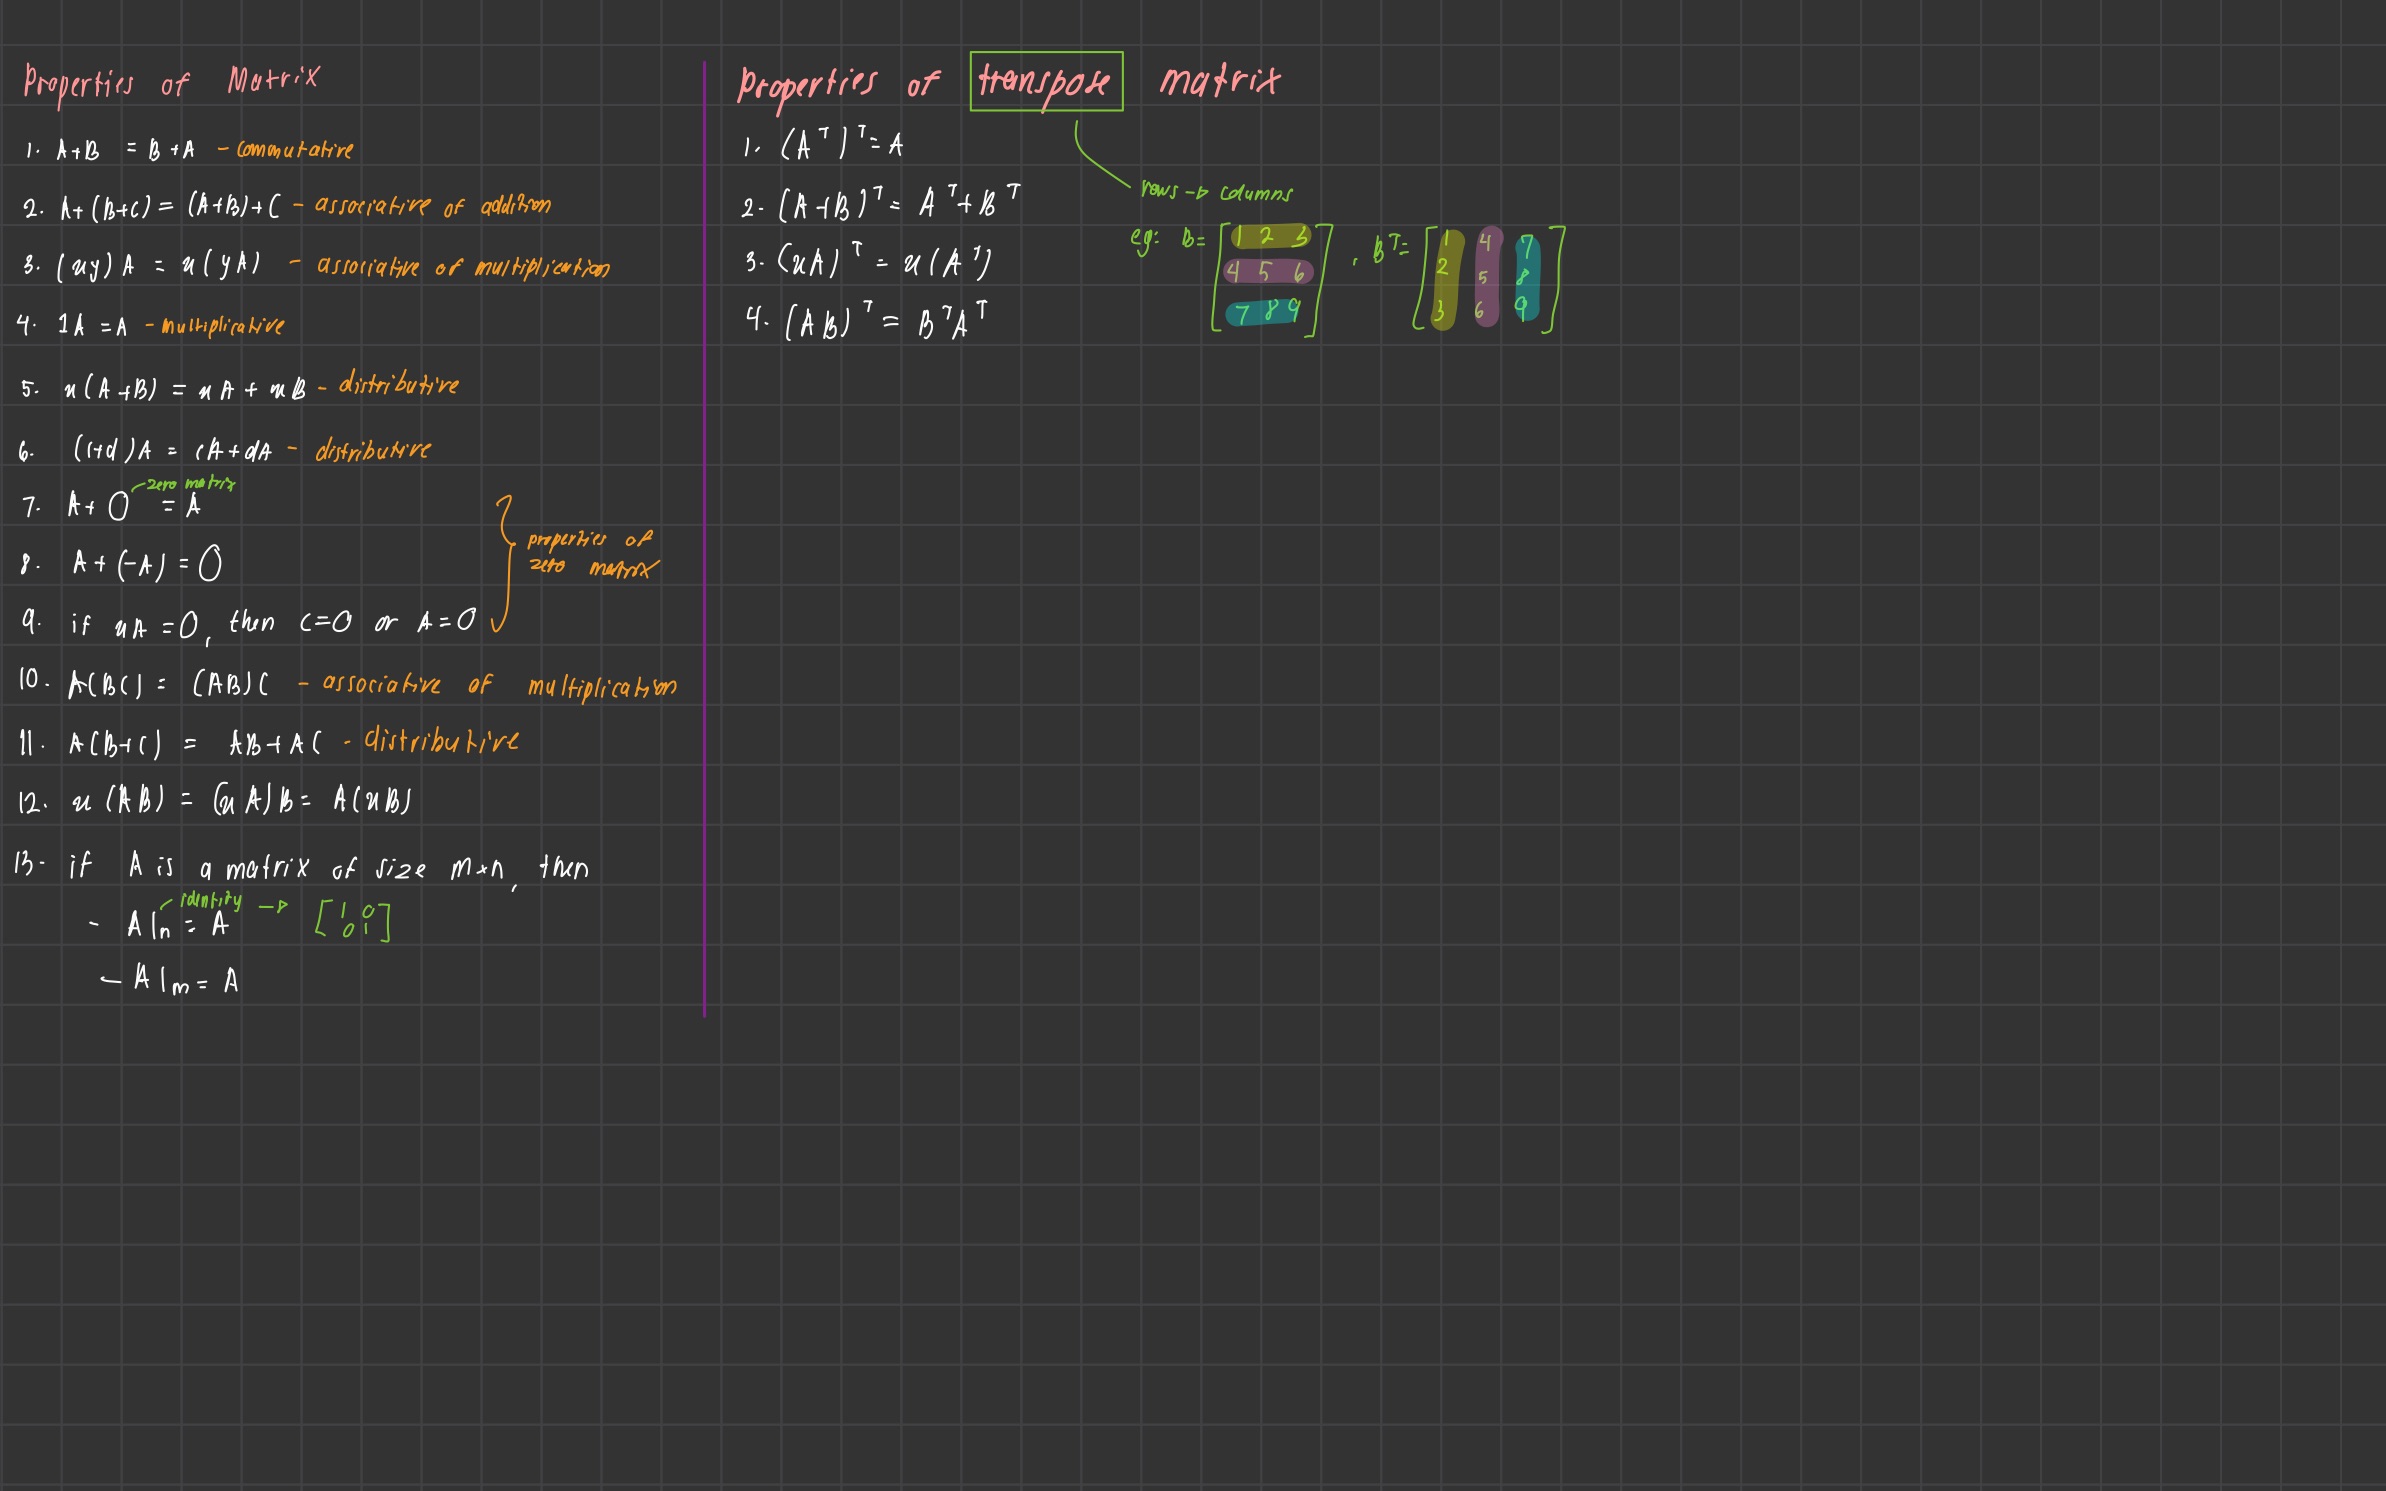 Properties of Matrix
1. A+B = B+A - commutative
2. A+(B+C) = (A+B)+C - associative of addition
3. (xy)A = x(yA) - associative of multiplication
4. 1A = A - multiplicative
5. x(A+B) = xA + xB - distributive
6. (c+d)A = cA+dA - distributive
zero matrix
7. A+O = A
8. A+(-A) = O
9. if xA = O, then c=0 or A=O
properties of
zero matrix
10. A(BC) = (AB)C - associative of multiplication
11. A(B+C) = AB+AC - distributive
12. x(AB) = (xA)B = A(xB)
13. if A is a matrix of size m×n, then
identity → [1 0
0 1]
- AIn = A
- AIm = A
Properties of transpose matrix
1. (Aᵀ)ᵀ = A
2. (A+B)ᵀ = Aᵀ+Bᵀ
3. (xA)ᵀ = x(Aᵀ)
4. (AB)ᵀ = BᵀAᵀ
rows → columns
eg: B = [1 2 3
4 5 6
7 8 9]
, Bᵀ = [1 4 7
2 5 8
3 6 9]